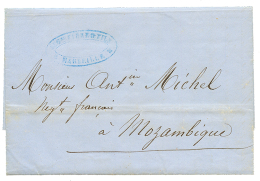 MARSEILLE
Monsieur Ant.in Michel
Neg.t français
à Mozambique